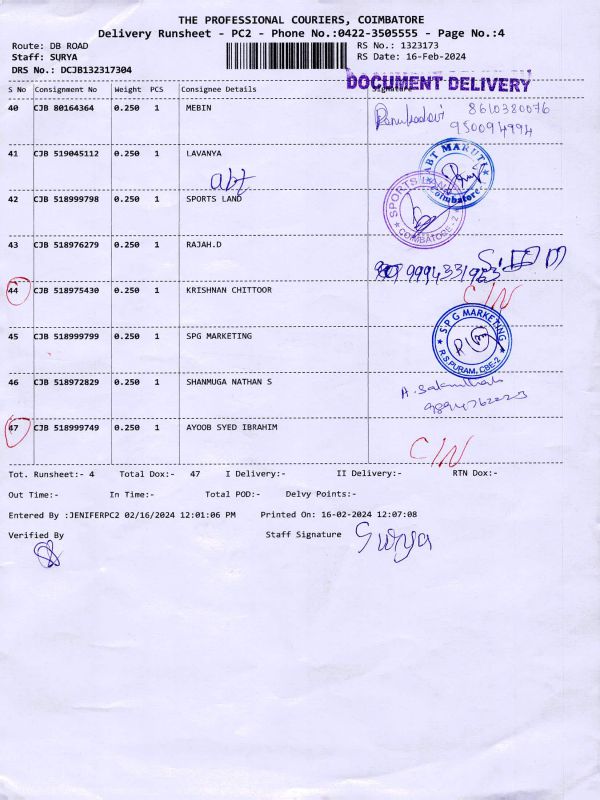 THE PROFESSIONAL COURIERS, COIMBATORE
Delivery Runsheet - PC2 - Phone No.:0422-3505555 - Page No.:4
Route: DB ROAD RS No.: 1323173
Staff: SURYA RS Date: 16-Feb-2024
DRS No.: DCJB132317304
DOCUMENT DELIVERY
S No Consignment No Weight PCS Consignee Details Signature
40 CJB 80164364 0.250 1 MEBIN
8610380076
950094994
41 CJB 519045112 0.250 1 LAVANYA
abt
ABT MARUTI
Coimbatore-
42 CJB 518999798 0.250 1 SPORTS LAND
SPORTS LAND
COIMBATORE-2
43 CJB 518976279 0.250 1 RAJAH.D
44 CJB 518975430 0.250 1 KRISHNAN CHITTOOR
C/N
45 CJB 518999799 0.250 1 SPG MARKETING
SPG MARKETING
R S PURAM, CBE-2
46 CJB 518972829 0.250 1 SHANMUGA NATHAN S
47 CJB 518999749 0.250 1 AYOOB SYED IBRAHIM
C/N
Tot. Runsheet:- 4 Total Dox:- 47 I Delivery:- II Delivery:- RTN Dox:-
Out Time:- In Time:- Total POD:- Delvy Points:-
Entered By :JENIFERPC2 02/16/2024 12:01:06 PM Printed On: 16-02-2024 12:07:08
Verified By Staff Signature Surya